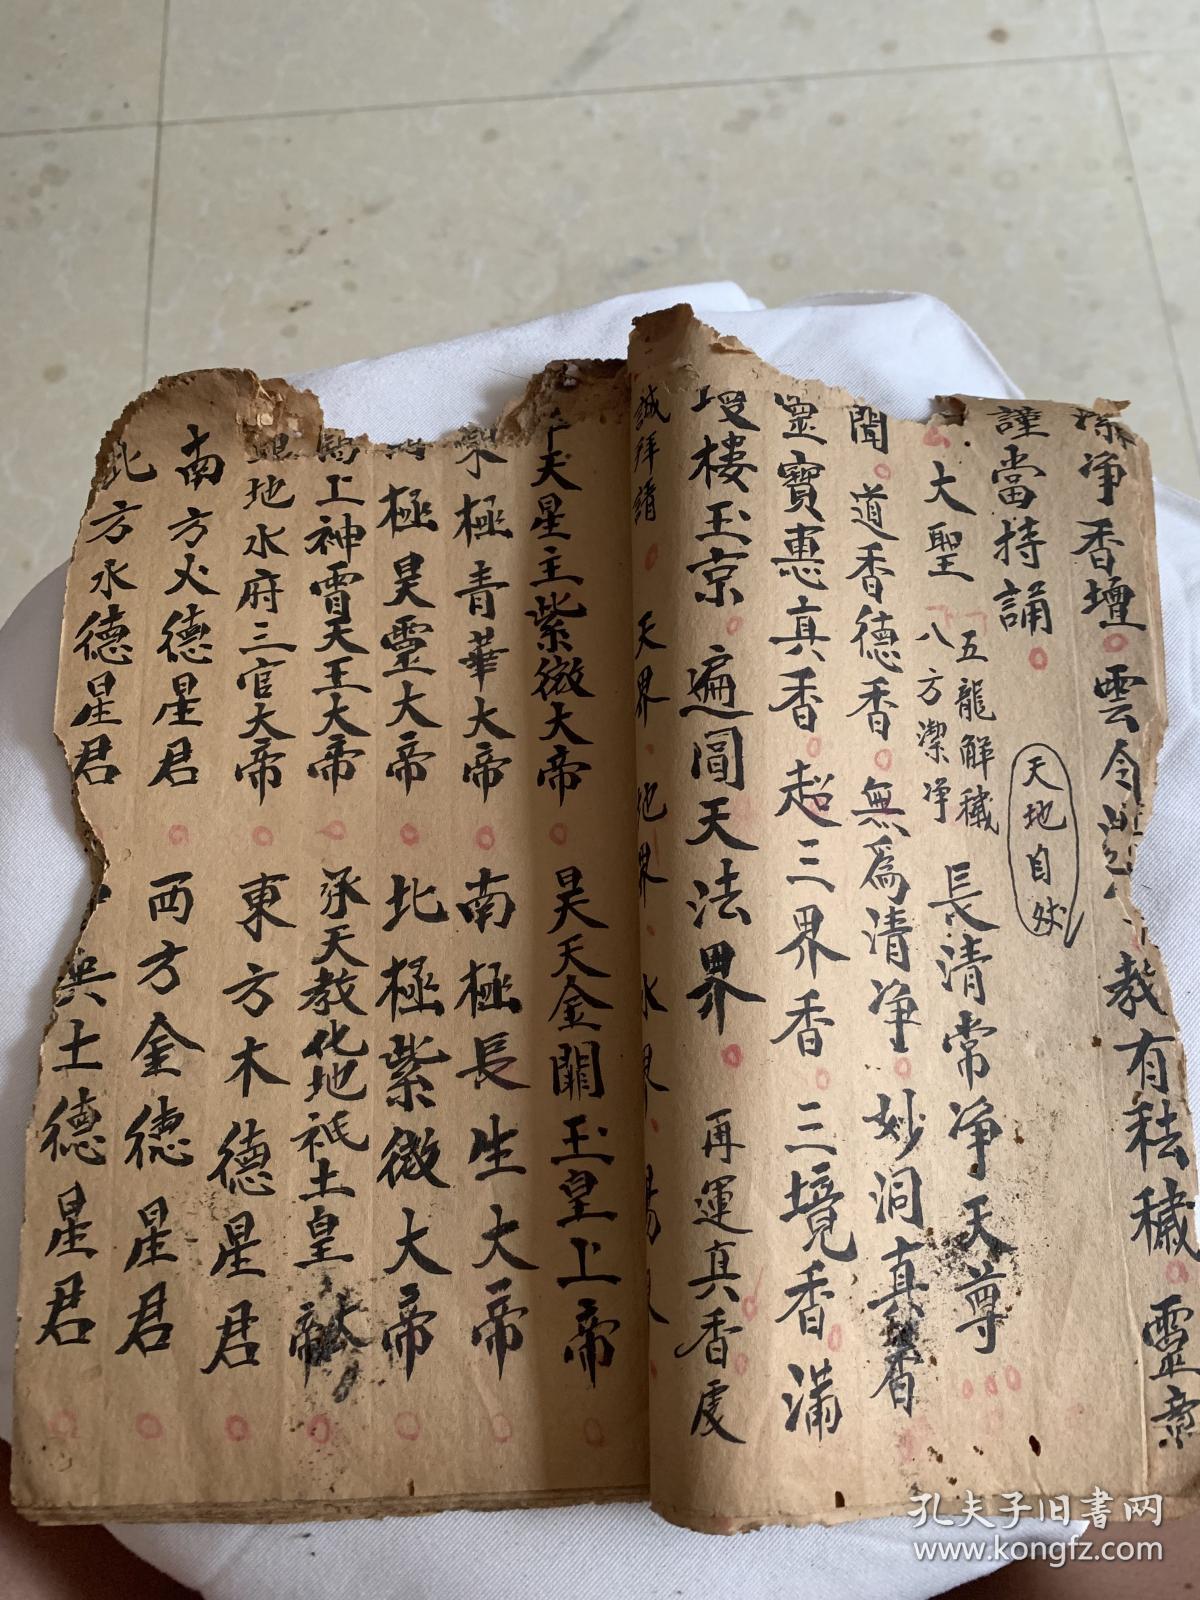 净香壇 雲令 教有秽 靈章
謹當持誦
天地自然
大聖 五龍解穢 八方潔净 長清常净天尊
聞 道香德香 無為清净 妙洞真香
靈寳惠真香 超三界香 三境香滿
瓊楼玉京 遍圓天法界 再運真香 虔
誠拜請 天界 地界 水界
天星主紫微大帝 昊天金闕玉皇上帝
東極青華大帝 南極長生大帝
極昊靈大帝 北極紫微大帝
上神霄天王大帝 承天教化地祇土皇
地水府三官大帝 東方木德星君
南方火德星君 西方金德星君
北方水德星君 土德星君
孔夫子旧书网
www.kongfz.com